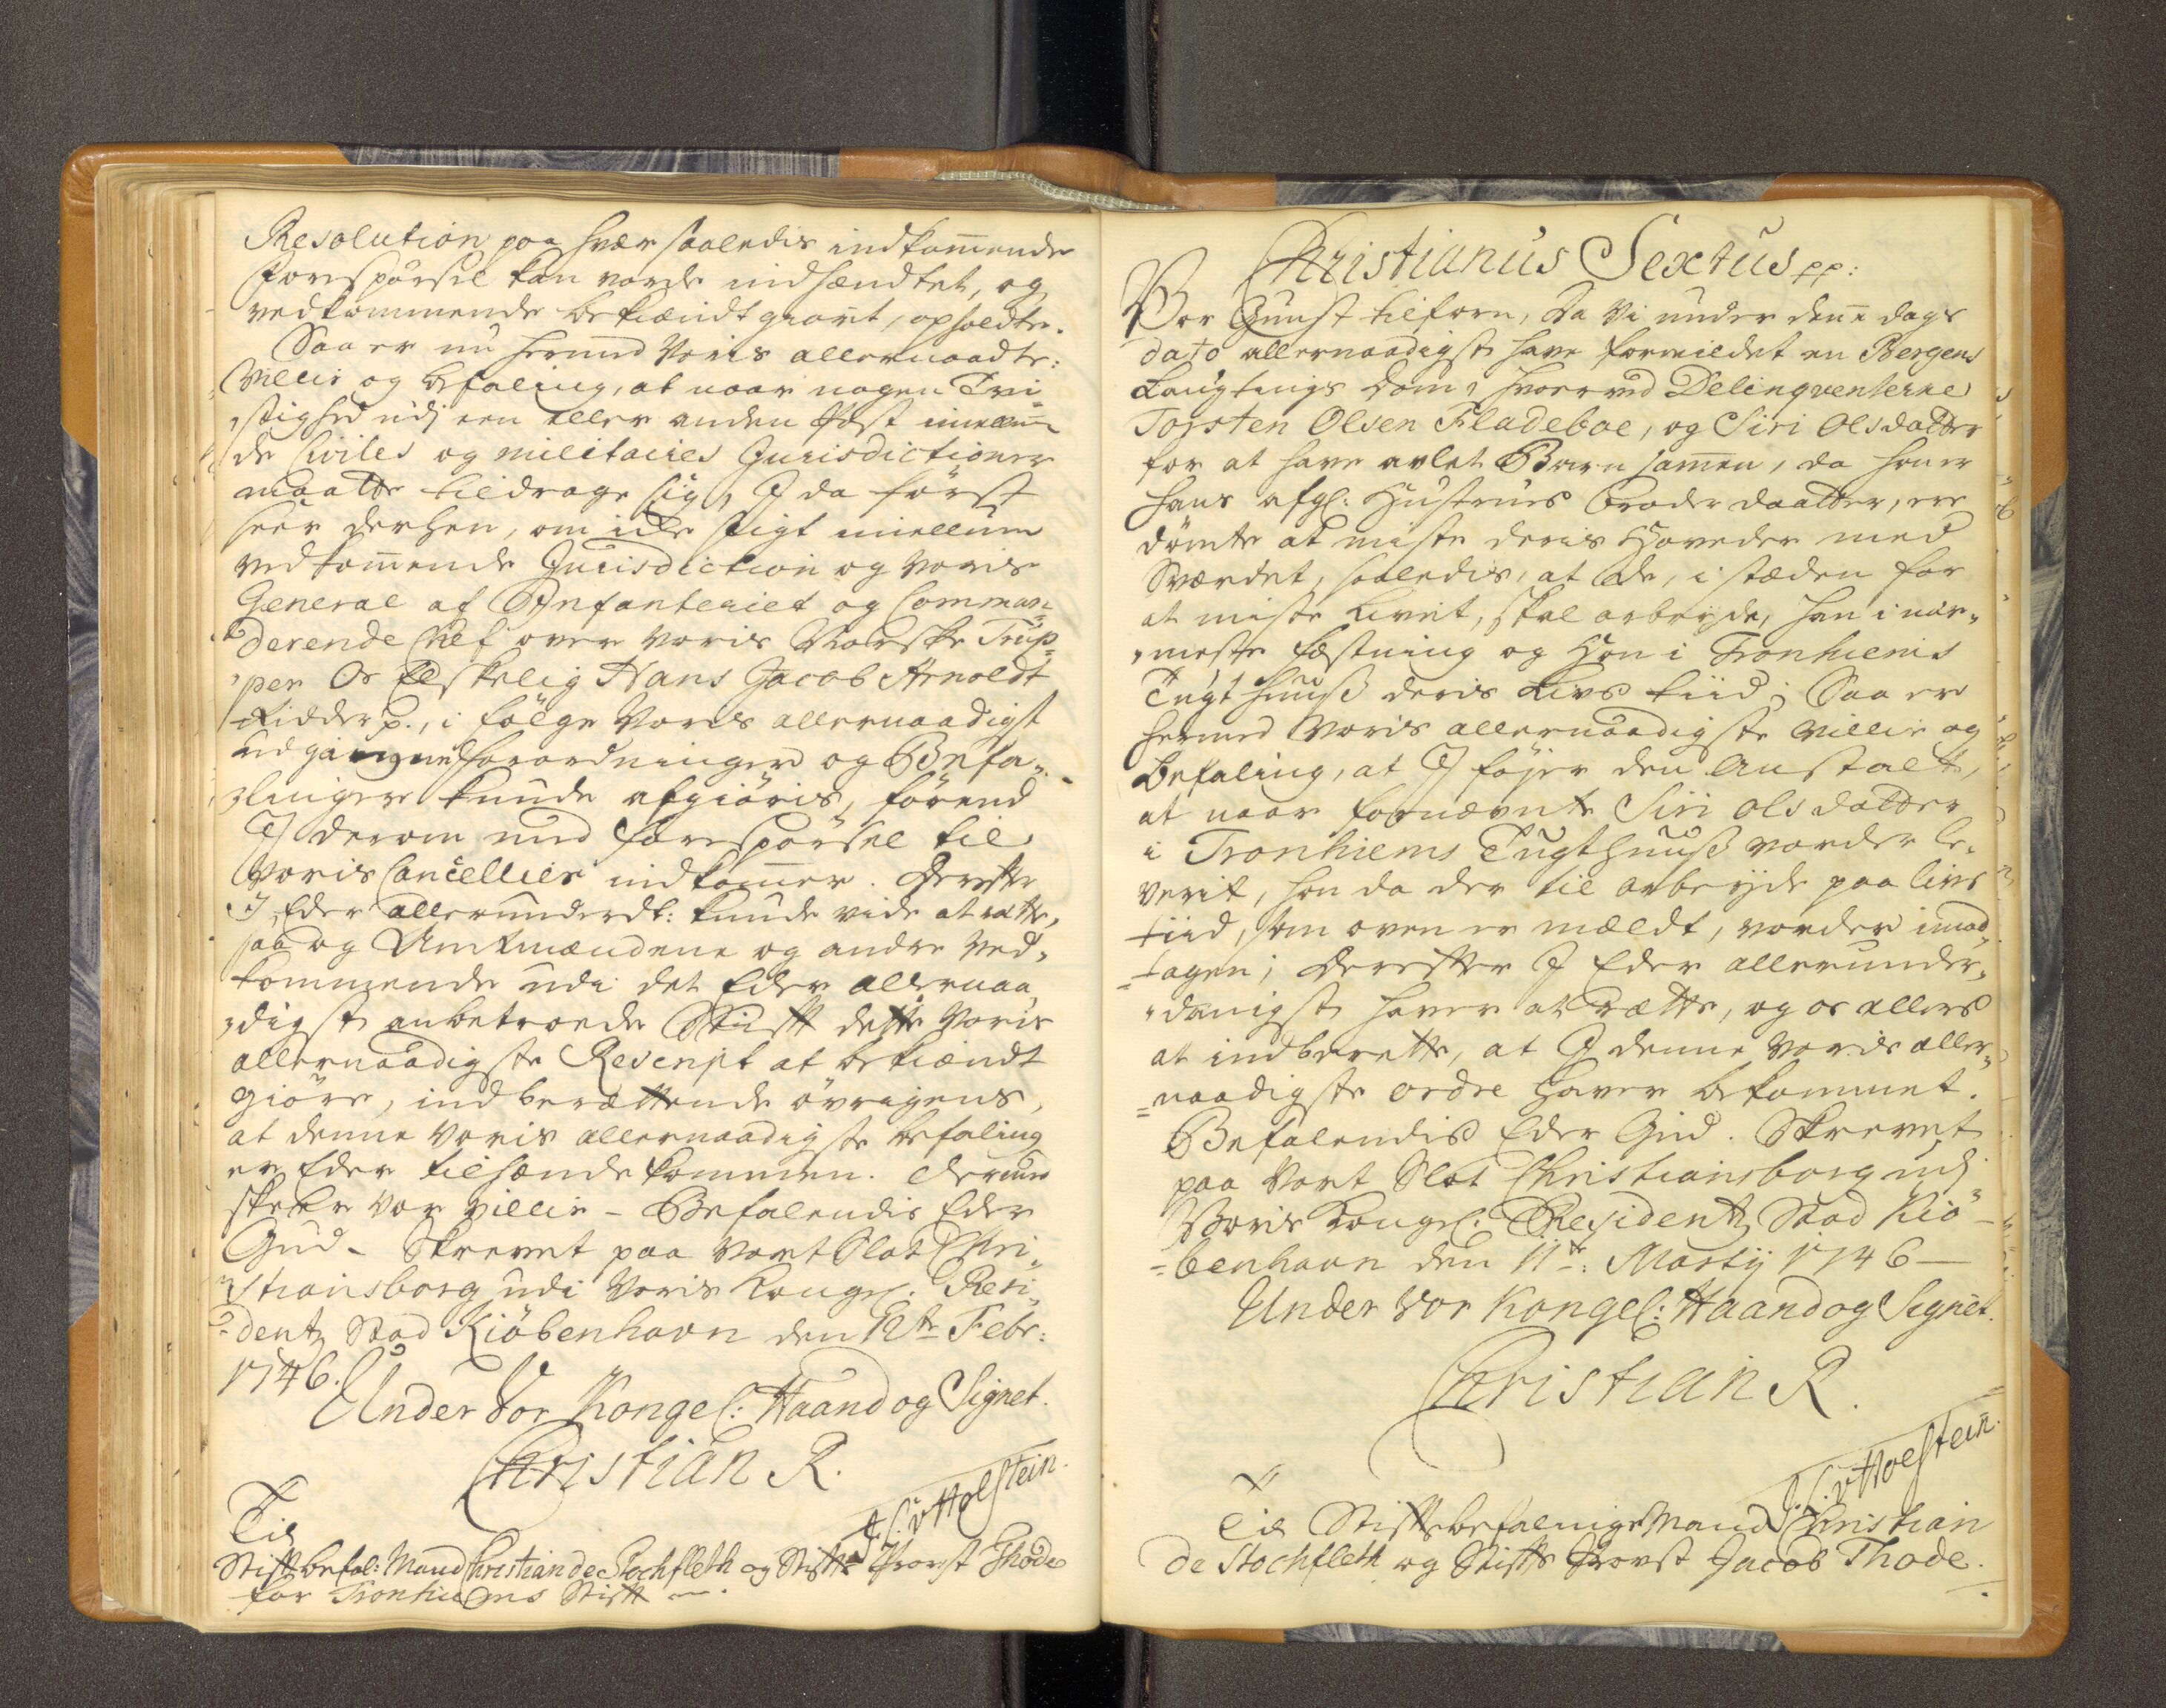 Resolution paa hver saaledis indkom̄ende
Forespörsel kan vorde indhændtet, og
vedkommende bekiændtgiort, opholdte.
Saa er nu hermed Voris allernaadte:
Villie og befaling, at naar nogen Tvi¬
stighed udj een eller anden Post imellem
de Civiles og militaires Jurisdictioner
maatte tildrage sig, I da först
seer derhen, om icke sligt imellum
vedkom̄ende Jurisdiction og Voris
General af Infanteriet og Comman¬
derende Chef over Voris Norske Trup¬
per Os Elskelig Hans Jacob Arnoldt
Ridder p., i fölge Voris allernaadigst
udgangne Forordninger og Befa¬
linger kunde afgiöris, förend
I derom med forespörsel til
Voris Cancellie indkom̄er. Derefter
I Eder allerunderdt: kunde vide at rette,
saa og Amtmændene og andre Ved¬
kommende udi det Eder allernaa¬
digst anbetroede Stift dette Voris
allernaadigste Rescript at bekiændt
giöre, indberettende övrigens,
at denne Voris allernaadigste befaling
er Eder tilhænde kommen. Derum
skeer Vor Villie – Befalendis Eder
Gud – Skrevet paa Vort Slot Chri¬
stiansborg udi Voris Kongel. Resi¬
dentz Stad Kiöbenhavn den 12te Febr:
1746.
Under Vor Kongel: Haand og Signet.
Christian R.
J. L. v Holstein.
Til
Stiftbefal: Mand Christian de Stochfleth og Stifts Provst Thode
for Tronhiems Stift
Christianus Sextus pp:
Vor Gunst tilforn, Da Vi under den̄e dags
dato allernaadigst have formildet en Bergens
Laugtings Dom, hvorved Delinqventerne
Torsten Olsen Fladeboe, og Siri Olsdatter
for at have avlet Barn sam̄en, da hun er
hans afgl: Hustrues broder daatter, ere
dömte at miste deris Hoveder med
Sværdet, saaledis, at de, i stæden for
at miste Livet, skal arbeyde, han i nær¬
meste fæstning og Hun i Tronhiems
Tugthuuß deris Livs tiid; Saa er
hermed Voris allernaadigste Villie og
Befaling, at I föyer den Anstalt,
at naar fornævnte Siri Olsdatter
i Tronhiems Tugthuuß vorder le¬
verit, hun da der til arbeyde paa livs
tiid, som oven er mældt, vorder imod¬
tagen; Derefter I Eder allerunder¬
danigst haver at rætte, og os allers
at indberette, at I denne Voris aller¬
naadigste ordre haver bekommet.
Befalendis Eder Gud. Skrevet
paa Vort Slot Christiansborg udj
Voris Kongel: Residentz Stad Kiö¬
benhavn den 11te: Martij 1746 –
Under Vor Kongel: Haand og Signet.
Christian R.
J. L. v Holstein.
Til Stiftsbefalnings Mand Christian
de Stochfleth og Stifts Provst Jacob Thode.